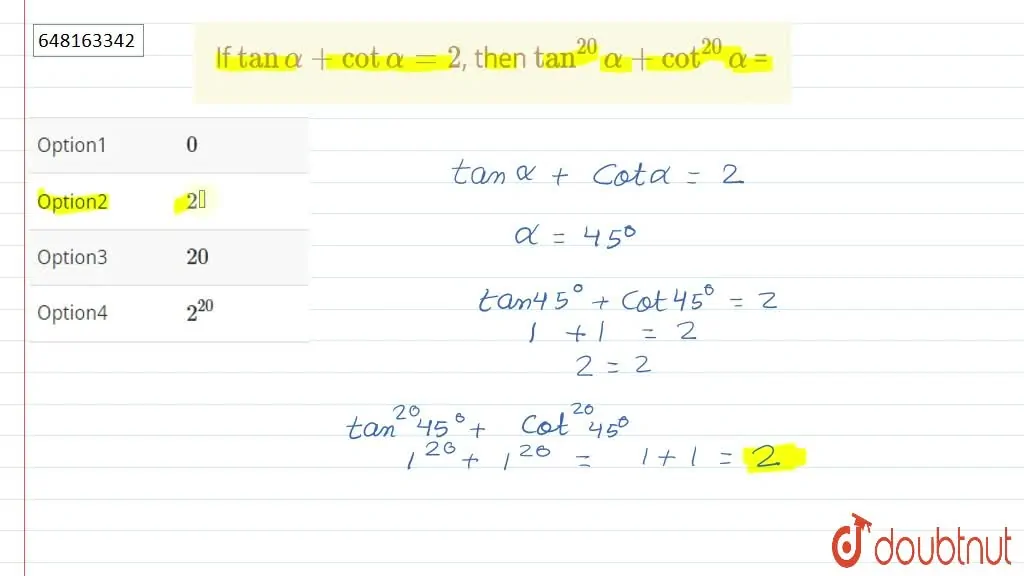 648163342
If tan α + cot α = 2, then tan²⁰ α + cot²⁰ α =
Option1 0
Option2 2▯
Option3 20
Option4 2²⁰
tan α + Cot α = 2
α = 45°
tan45° + Cot 45° = 2
1 + 1 = 2
2 = 2
tan²⁰45° + Cot²⁰45°
1²⁰ + 1²⁰ = 1 + 1 = 2
doubtnut